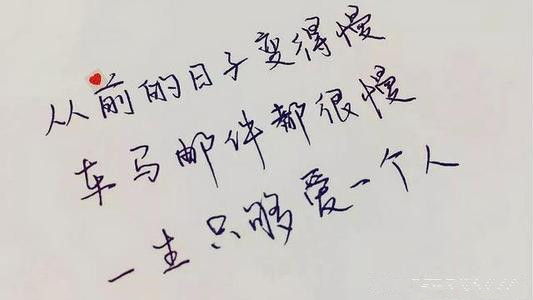 从前的日子变得慢
车马邮件都很慢
一生只够爱一个人